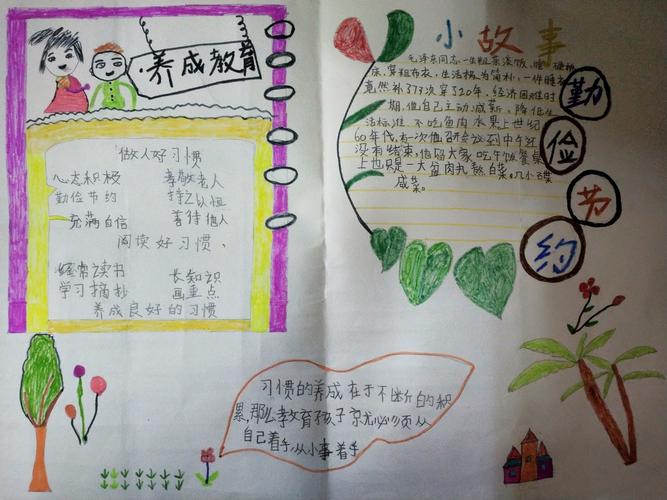 养成教育
做人好习惯
心态积极 孝敬老人
勤俭节约 持之以恒
充满自信 善待他人
阅读好习惯、
经常读书 长知识
学习摘抄 画重点
养成良好的习惯
小故事
毛泽东同志一生粗茶淡饭、睡硬板
床、穿粗布衣，生活极为简朴，一件睡衣
竟然补了73次穿了20年，经济困难时
期，他自己主动减薪、降低生
活标准，不吃鱼肉水果上世纪
60年代，有一次他召开会议到中午还
没有结束，他留大家吃午饭餐桌
上也只是一大盆肉丸熬白菜。几小碟
咸菜。
勤
俭
节
约
习惯的养成在于不断的积
累，那么教育孩子就必须从
自己着手，从小事着手